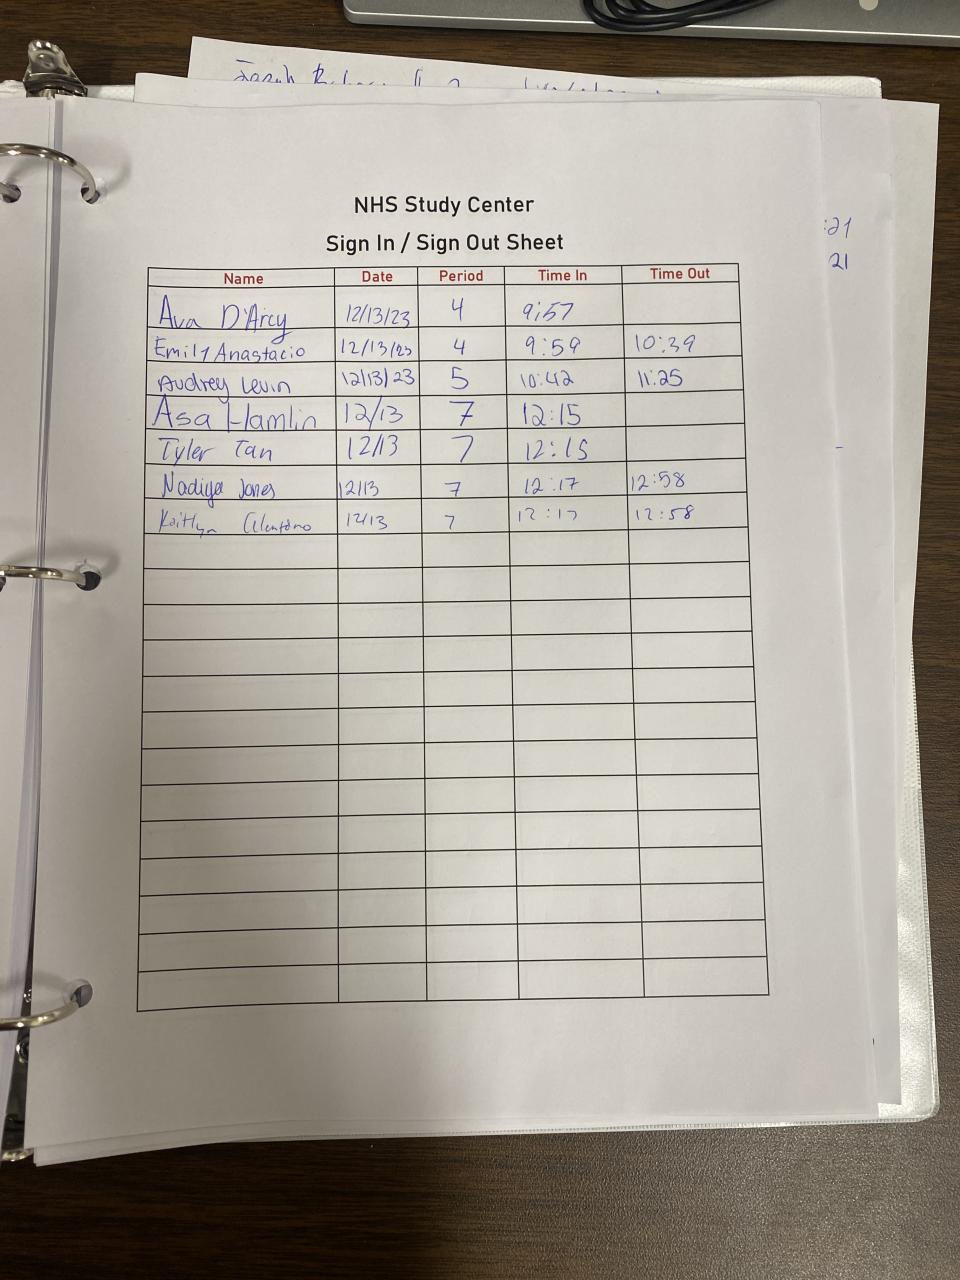 NHS Study Center
Sign In / Sign Out Sheet
Name Date Period Time In Time Out
Ava D'Arcy 12/13/23 4 9:57
Emily Anastacio 12/13/23 4 9:59 10:39
Audrey Levin 12/13/23 5 10:42 11:25
Asa Hamlin 12/13 7 12:15
Tyler Tan 12/13 7 12:15
Nadiya Jones 12/13 7 12:17 12:58
Kaitlyn 12/13 7 12:17 12:58
:21
21